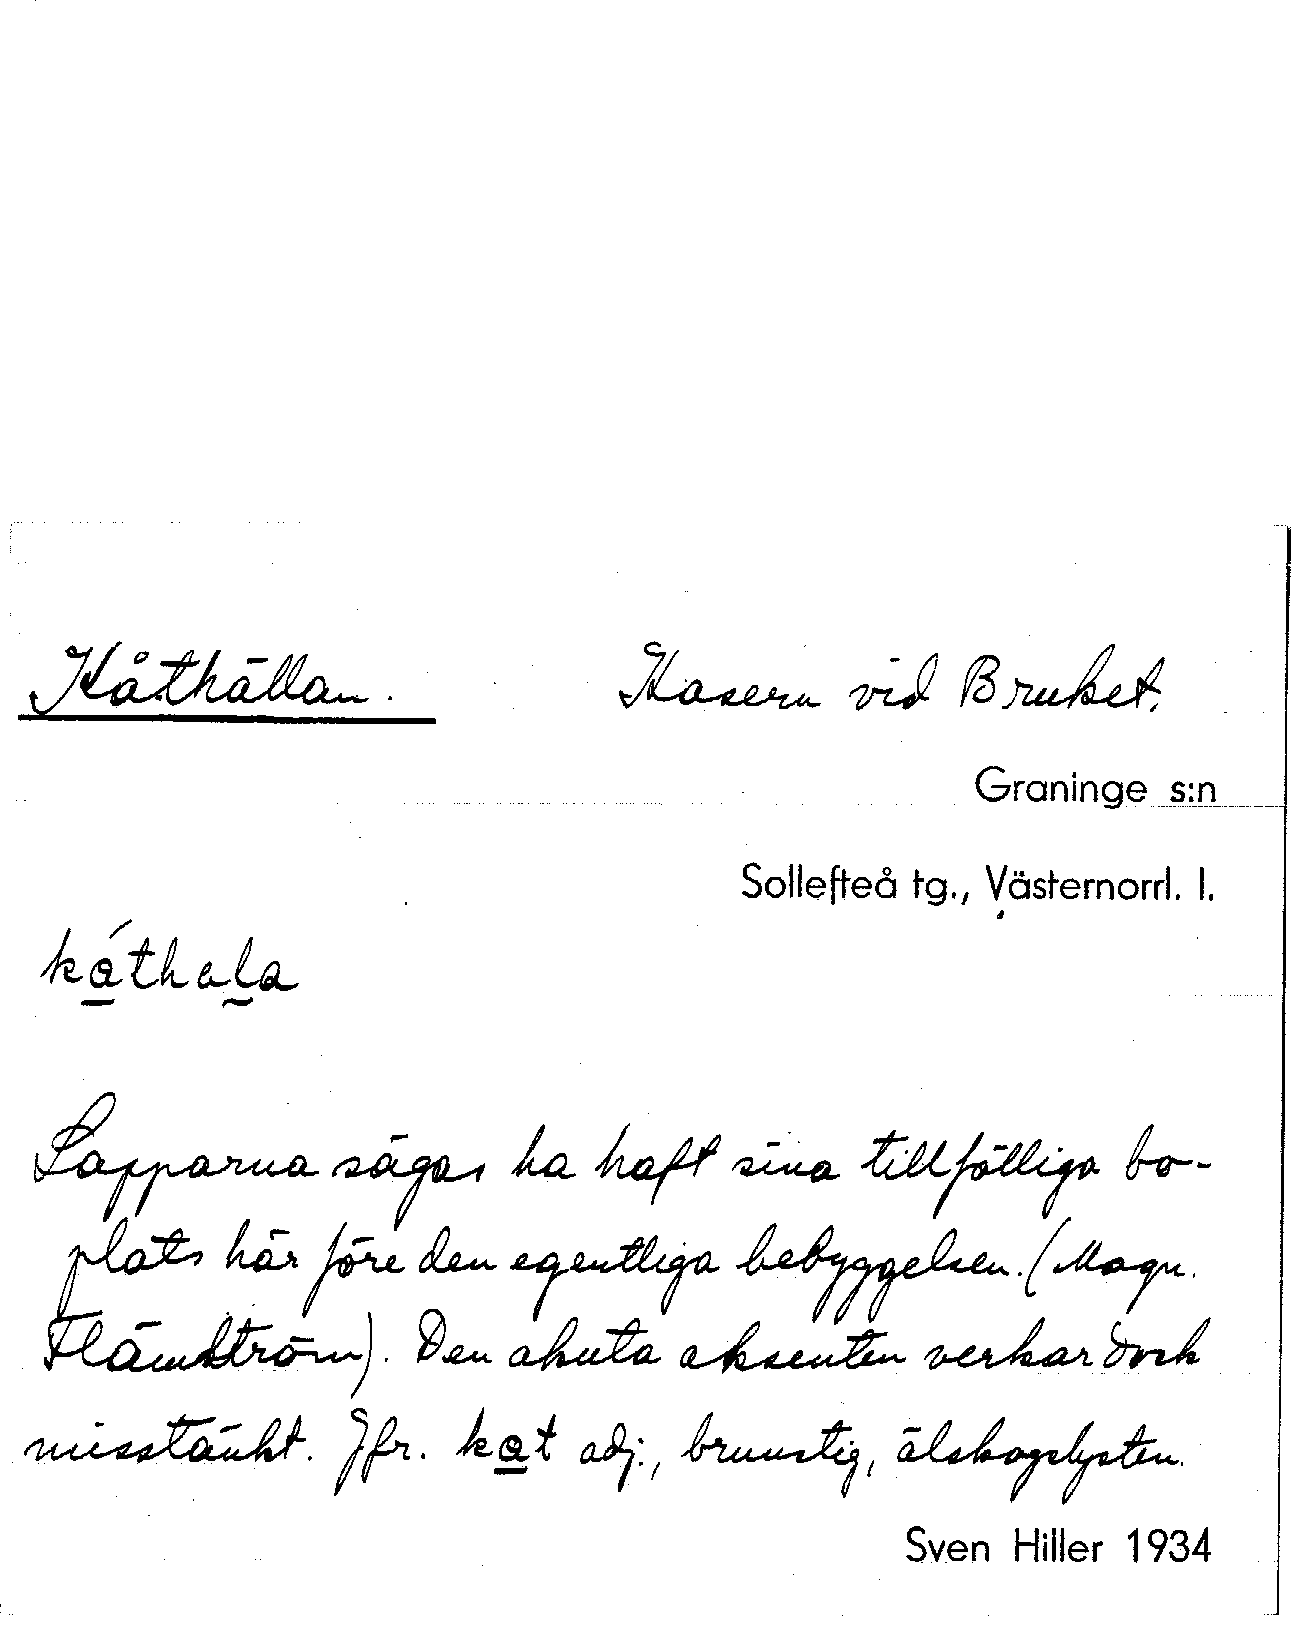 Kåthällan. Kasern vid Bruket.
Graninge s:n
Sollefteå tg., Västernorrl. l.
Lapparna sägas ha haft sina tillfälliga bo-
plats här före den egentliga bebyggelsen. (Magn.
Flämström). Den akuta aksenten verkar dock
misstänkt. Jfr. kat adj., brunstig, älskogslysten.
Sven Hiller 1934